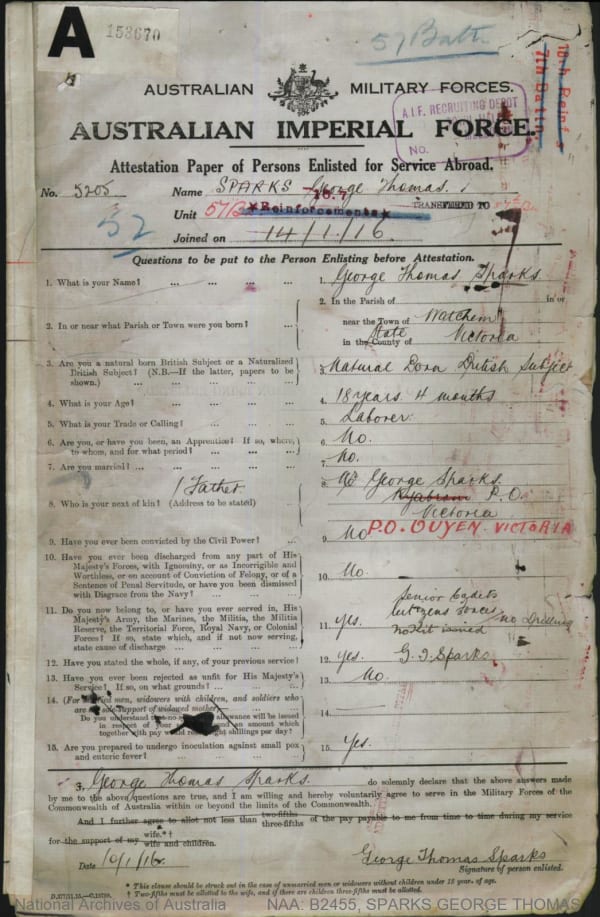 A
153670
57 Battn
18th Reinf.
7th Battn
AUSTRALIAN MILITARY FORCES.
A.I.F. RECRUITING DEPOT
TOWN HALL
No.
AUSTRALIAN IMPERIAL FORCE.
Attestation Paper of Persons Enlisted for Service Abroad.
No. 5205 Name SPARKS George Thomas.
Unit 57/B Reinforcements TRANSFERRED TO
52
Joined on 14/1/16.
Questions to be put to the Person Enlisting before Attestation.
1. What is your Name? ... ... ... 1. George Thomas Sparks.
2. In or near what Parish or Town were you born? ... 2. In the Parish of in or
near the Town of Watchem
in the County of State Victoria
3. Are you a natural born British Subject or a Naturalized
British Subject? (N.B.—If the latter, papers to be
shown.) ... ... ... 3. Natural Born British Subject
4. What is your Age? ... ... ... 4. 18 years 4 months
5. What is your Trade or Calling? ... ... 5. Laborer.
6. Are you, or have you been, an Apprentice? If so, where,
to whom, and for what period? ... ... 6. No.
7. Are you married? ... ... ... 7. No.
Father
8. Who is your next of kin? (Address to be stated) 8. George Sparks.
Kyabram P.O.
Victoria
P.O. OUYEN VICTORIA
9. Have you ever been convicted by the Civil Power? ... 9. No
10. Have you ever been discharged from any part of His
Majesty's Forces, with Ignominy, or as Incorrigible and
Worthless, or on account of Conviction of Felony, or of a
Sentence of Penal Servitude, or have you been dismissed
with Disgrace from the Navy? ... ... 10. No.
11. Do you now belong to, or have you ever served in, His
Majesty's Army, the Marines, the Militia, the Militia
Reserve, the Territorial Force, Royal Navy, or Colonial
Forces? If so, state which, and if not now serving,
state cause of discharge ... ... 11. yes. Senior Cadets
Citizens Forces no Drilling
No Kit issued
12. Have you stated the whole, if any, of your previous service? 12. yes. G.T. Sparks.
13. Have you ever been rejected as unfit for His Majesty's
Service? If so, on what grounds? ... ... 13. No.
14. (For married men, widowers with children, and soldiers who
are the sole support of widowed mother—
Do you understand that no separation allowance will be issued
in respect of your and an amount which
together with pay would eight shillings per day? 14.
15. Are you prepared to undergo inoculation against small pox
and enteric fever? ... ... ... 15. Yes.
I, George Thomas Sparks. do solemnly declare that the above answers made
by me to the above questions are true, and I am willing and hereby voluntarily agree to serve in the Military Forces of the
Commonwealth of Australia within or beyond the limits of the Commonwealth.
And I further agree to allot not less than two-fifths three-fifths of the pay payable to me from time to time during my service
for the support of my wife.*† wife and children.
Date 10/1/16. George Thomas Sparks
Signature of person enlisted.
* This clause should be struck out in the case of unmarried men or widowers without children under 18 year. of age.
† Two-fifths must be allotted to the wife, and if there are children three-fifths must be allotted.
National Archives of Australia NAA: B2455, SPARKS GEORGE THOMAS